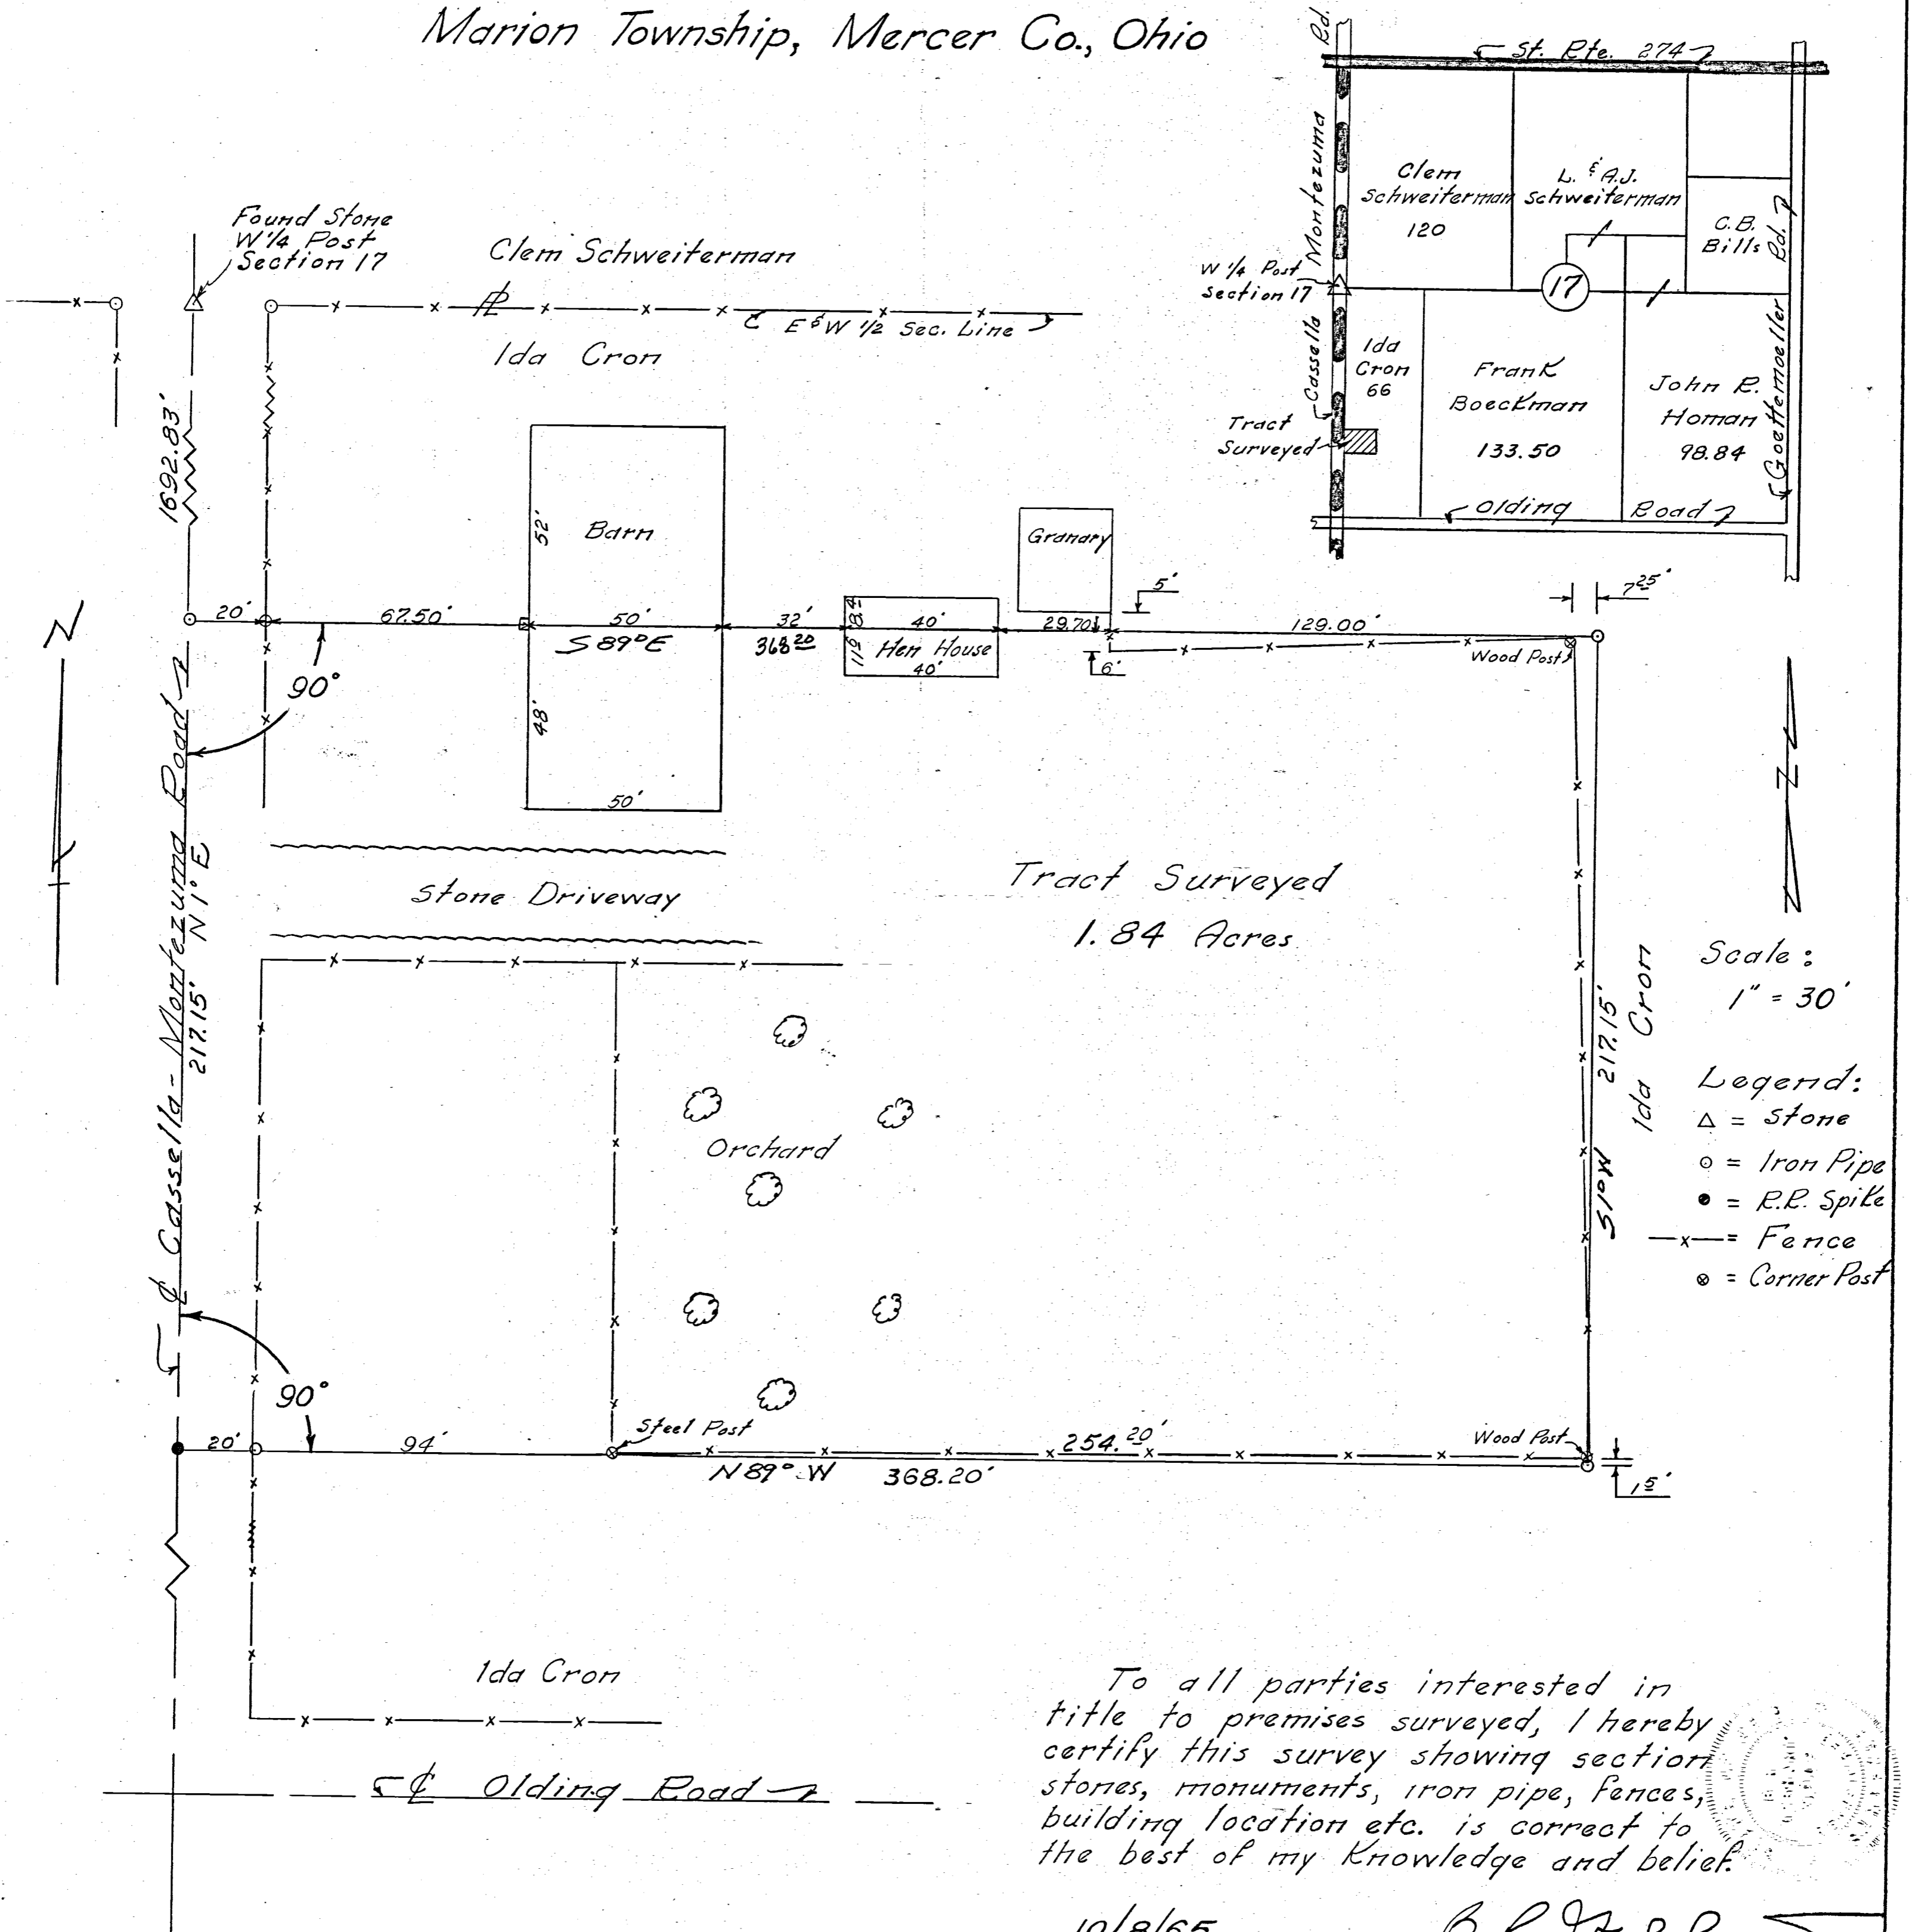 Marion Township, Mercer Co., Ohio
St. Rte. 274
Cassella Montezuma Rd.
Clem
Schweiterman
120
L. & A.J.
Schweiterman
C.B.
Bills
W 1/4 Post
Section 17
17
Ida
Cron
66
Frank
Boeckman
133.50
John R.
Homan
98.84
Goettemoeller Rd.
Tract
Surveyed
Olding Road
Found Stone
W 1/4 Post
Section 17
Clem Schweiterman
PL
E & W 1/2 Sec. Line
Ida Cron
1692.83'
52'
Barn
Granary
5'
7.25'
20'
67.50'
50'
32'
8.4
40'
29.70
129.00'
S 89° E
368.20
11.6
Hen House
40'
6'
Wood Post
N
90°
48'
50'
N
Stone Driveway
Tract Surveyed
1.84 Acres
℄ Cassella - Montezuma Road
217.15' N 1° E
S 1° W 217.15'
Ida Cron
Scale:
1" = 30'
Legend:
△ = Stone
○ = Iron Pipe
● = R.R. Spike
—x— = Fence
⊗ = Corner Post
Orchard
90°
20'
94'
Steel Post
254.20'
Wood Post
N 89° W 368.20'
1.5'
Ida Cron
℄ Olding Road
To all parties interested in
title to premises surveyed, I hereby
certify this survey showing section
stones, monuments, iron pipe, fences,
building location etc. is correct to
the best of my Knowledge and belief.
10/8/65